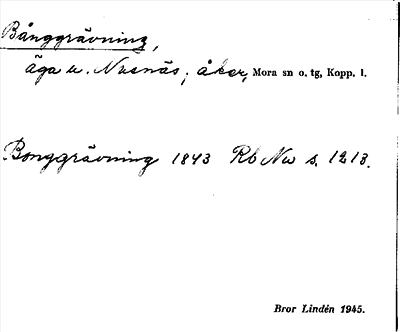 Bånggrävning,
äga u. Nusnäs; åker, Mora sn o. tg, Kopp. l.
Bonggrävning 1843 Rb Nw s. 1213.
Bror Lindén 1945.